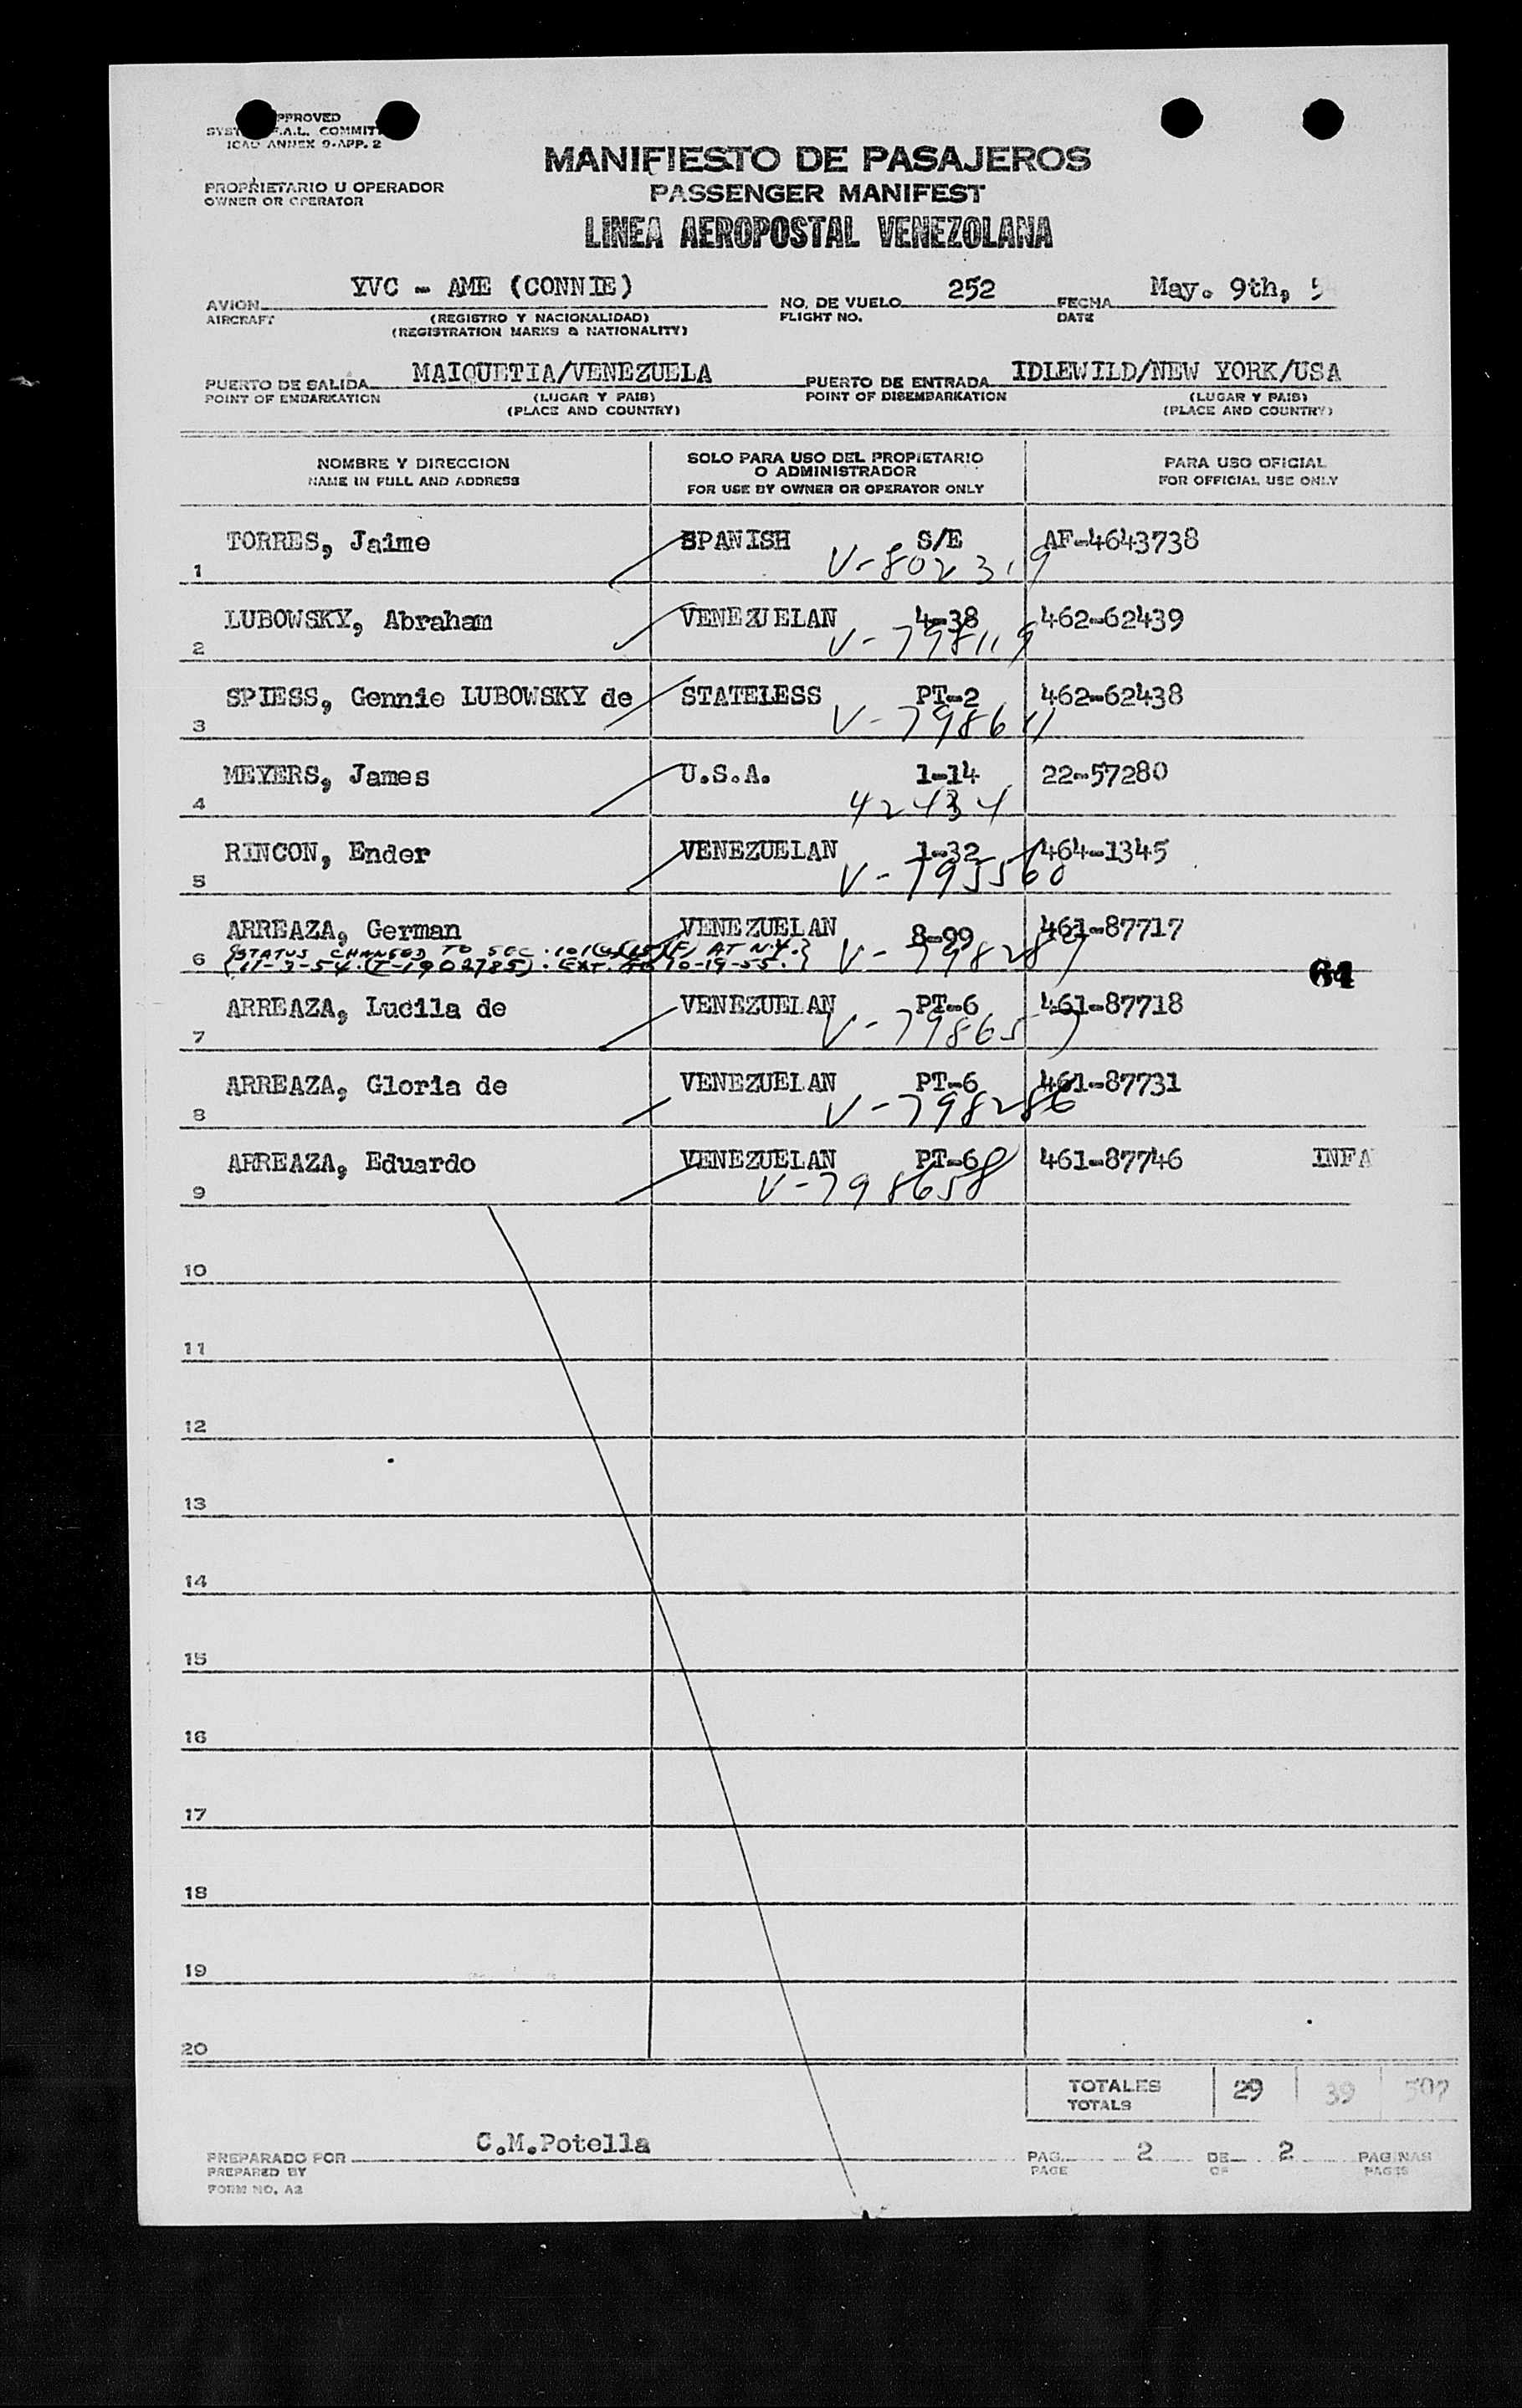 APPROVED
F.A.L. COMMIT
ICAO ANNEX 9-APP. 2
MANIFIESTO DE PASAJEROS
PROPRIETARIO U OPERADOR
OWNER OR OPERATOR
PASSENGER MANIFEST
LINEA AEROPOSTAL VENEZOLANA
AVION YVC - AME (CONNIE) NO. DE VUELO 252 FECHA May. 9th, 5
AIRCRAFT (REGISTRO Y NACIONALIDAD) FLIGHT NO. DATE
(REGISTRATION MARKS & NATIONALITY)
PUERTO DE SALIDA MAIQUETIA/VENEZUELA PUERTO DE ENTRADA IDLEWILD/NEW YORK/USA
POINT OF EMBARKATION (LUGAR Y PAIS) POINT OF DISEMBARKATION (LUGAR Y PAIS)
(PLACE AND COUNTRY) (PLACE AND COUNTRY)
NOMBRE Y DIRECCION SOLO PARA USO DEL PROPIETARIO O ADMINISTRADOR PARA USO OFICIAL
NAME IN FULL AND ADDRESS FOR USE BY OWNER OR OPERATOR ONLY FOR OFFICIAL USE ONLY
TORRES, Jaime SPANISH S/E AF-4643738
1 V-802319
LUBOWSKY, Abraham VENEZUELAN 4-38 462-62439
2 V-798119
SPIESS, Gennie LUBOWSKY de STATELESS PT-2 462-62438
3 V-798611
MEYERS, James U.S.A. 1-14 22-57280
4 42434
RINCON, Ender VENEZUELAN 1-32 464-1345
5 V-795560
ARREAZA, German VENEZUELAN 8-99 461-87717
STATUS CHANGED TO SEC. 101(a)(15)(F) AT N.Y.
6 11-3-54. (T-1902785). EXT. to 10-19-55. V-798287
64
ARREAZA, Lucila de VENEZUELAN PT-6 461-87718
7 V-798657
ARREAZA, Gloria de VENEZUELAN PT-6 461-87731
8 V-798286
ARREAZA, Eduardo VENEZUELAN PT-6 461-87746 INFA
9 V-798658
10
11
12
13
14
15
16
17
18
19
20
TOTALES 29 39 507
TOTALS
PREPARADO POR C.M.Potella PAG. 2 DE 2 PAGINAS
PREPARED BY PAGE OF PAGES
FORM NO. A2